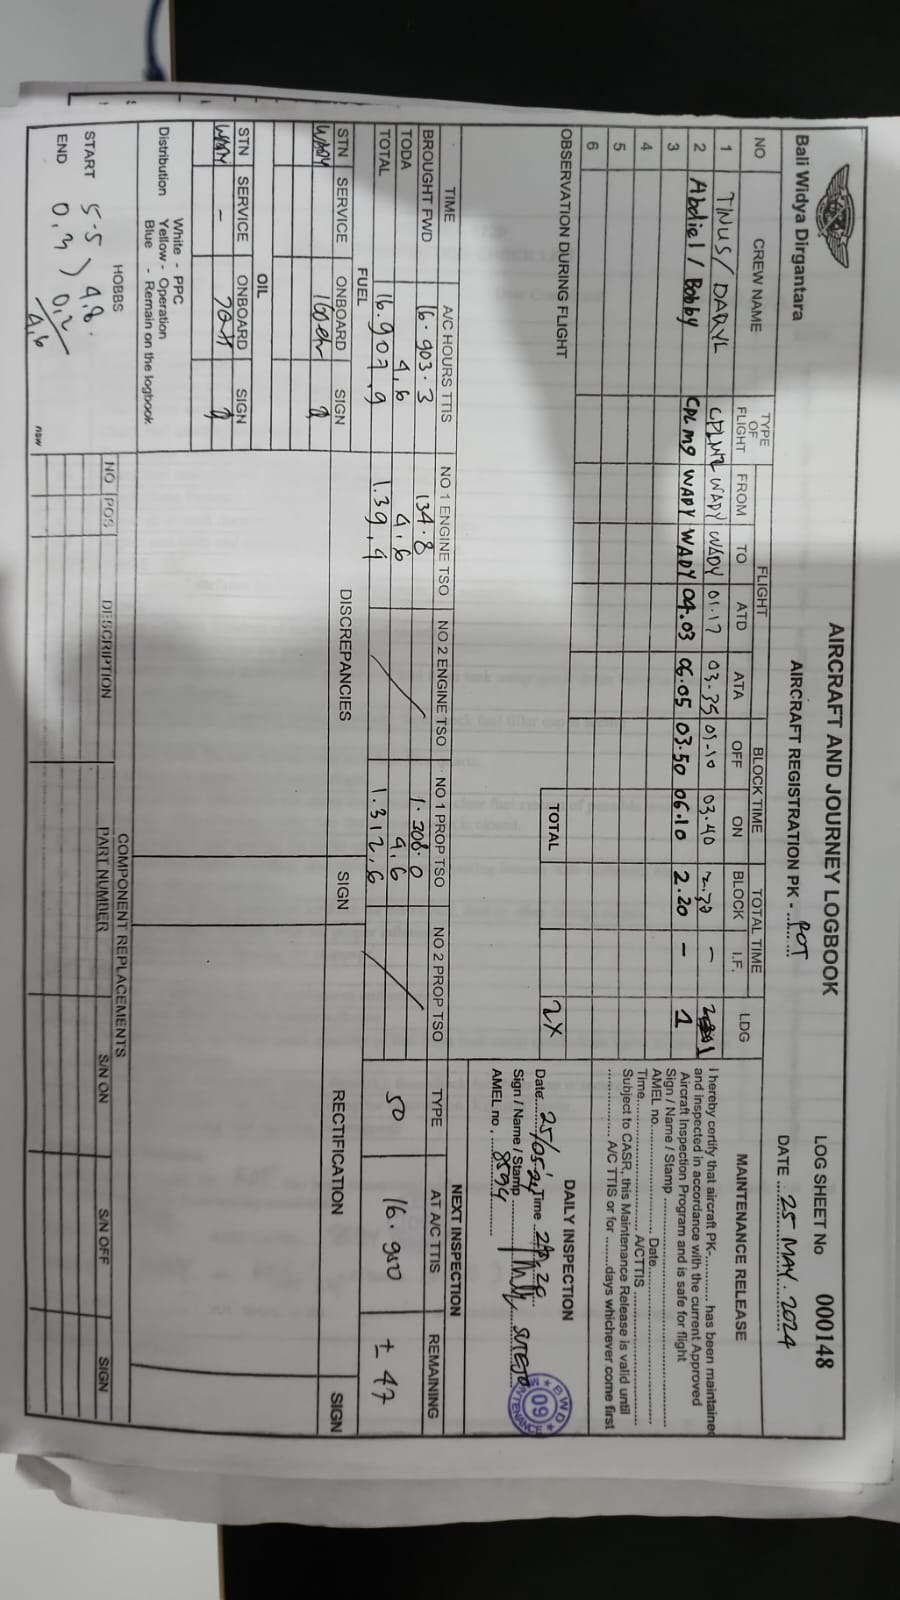 Bali Widya Dirgantara
AIRCRAFT AND JOURNEY LOGBOOK
AIRCRAFT REGISTRATION PK - ROT
LOG SHEET No 000148
DATE 25 MAY. 2024
NO CREW NAME TYPE OF FLIGHT FLIGHT BLOCK TIME TOTAL TIME LDG
FROM TO ATD ATA OFF ON BLOCK I.F.
1 TINUS / DARYL WADY WADY 01.17 03.35 01.10 03.40 2.30 - 1
2 Abdiel / Bobby CPL M9 WADY WADY 04.03 06.05 03.50 06.10 2.20 - 1
3
4
5
6
TOTAL 2X
OBSERVATION DURING FLIGHT
MAINTENANCE RELEASE
I hereby certify that aircraft PK-............ has been maintained
and inspected in accordance with the current Approved
Aircraft Inspection Program and is safe for flight
Sign / Name / Stamp
AMEL no. Date
Time A/CTTIS
Subject to CASR, this Maintenance Release is valid until
A/C TTIS or for ........days whichever come first
DAILY INSPECTION
Date 25/05-'24 Time
Sign / Name / Stamp SUTEJO
AMEL no. 8594
BWD 09 MAINTENANCE
TIME A/C HOURS TTIS NO 1 ENGINE TSO NO 2 ENGINE TSO NO 1 PROP TSO NO 2 PROP TSO
BROUGHT FWD 16.903.3 134.8 1.308.0
TODA 4,6 4,6 4,6
TOTAL 16.907,9 139,4 1.312,6
NEXT INSPECTION
TYPE AT A/C TTIS REMAINING
50 16.950 ± 42
FUEL
STN SERVICE ONBOARD SIGN
WADY
OIL
STN SERVICE ONBOARD SIGN
WADY -
DISCREPANCIES SIGN RECTIFICATION SIGN
Distribution White - PPC
Yellow - Operation
Blue - Remain on the logbook
HOBBS
START 5.5 ) 4.8.
END 0.3 0.2
4.6
COMPONENT REPLACEMENTS
NO POS DESCRIPTION PART NUMBER S/N ON S/N OFF SIGN